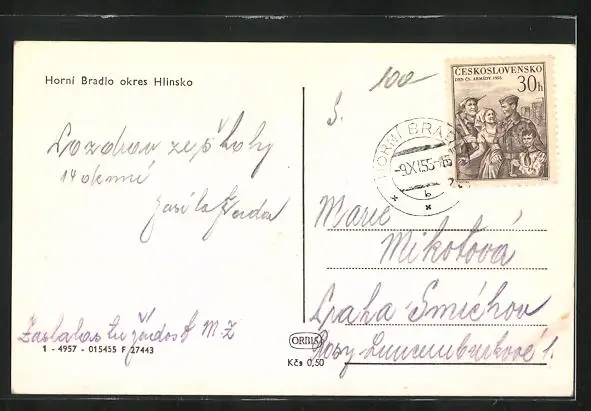 Horní Bradlo okres Hlinsko
Pozdrav ze školy
14 denní
S. 100
ČESKOSLOVENSKO
DEN ČS. ARMÁDY 1955
30h
HORNÍ BRAD
-9.XI.55-15
b
Marie
Mikotová
Praha Smíchov
Rosy Luxemburkové 1.
M Z
1 - 4957 - 015455 F 27443
ORBIS
Kčs 0,50